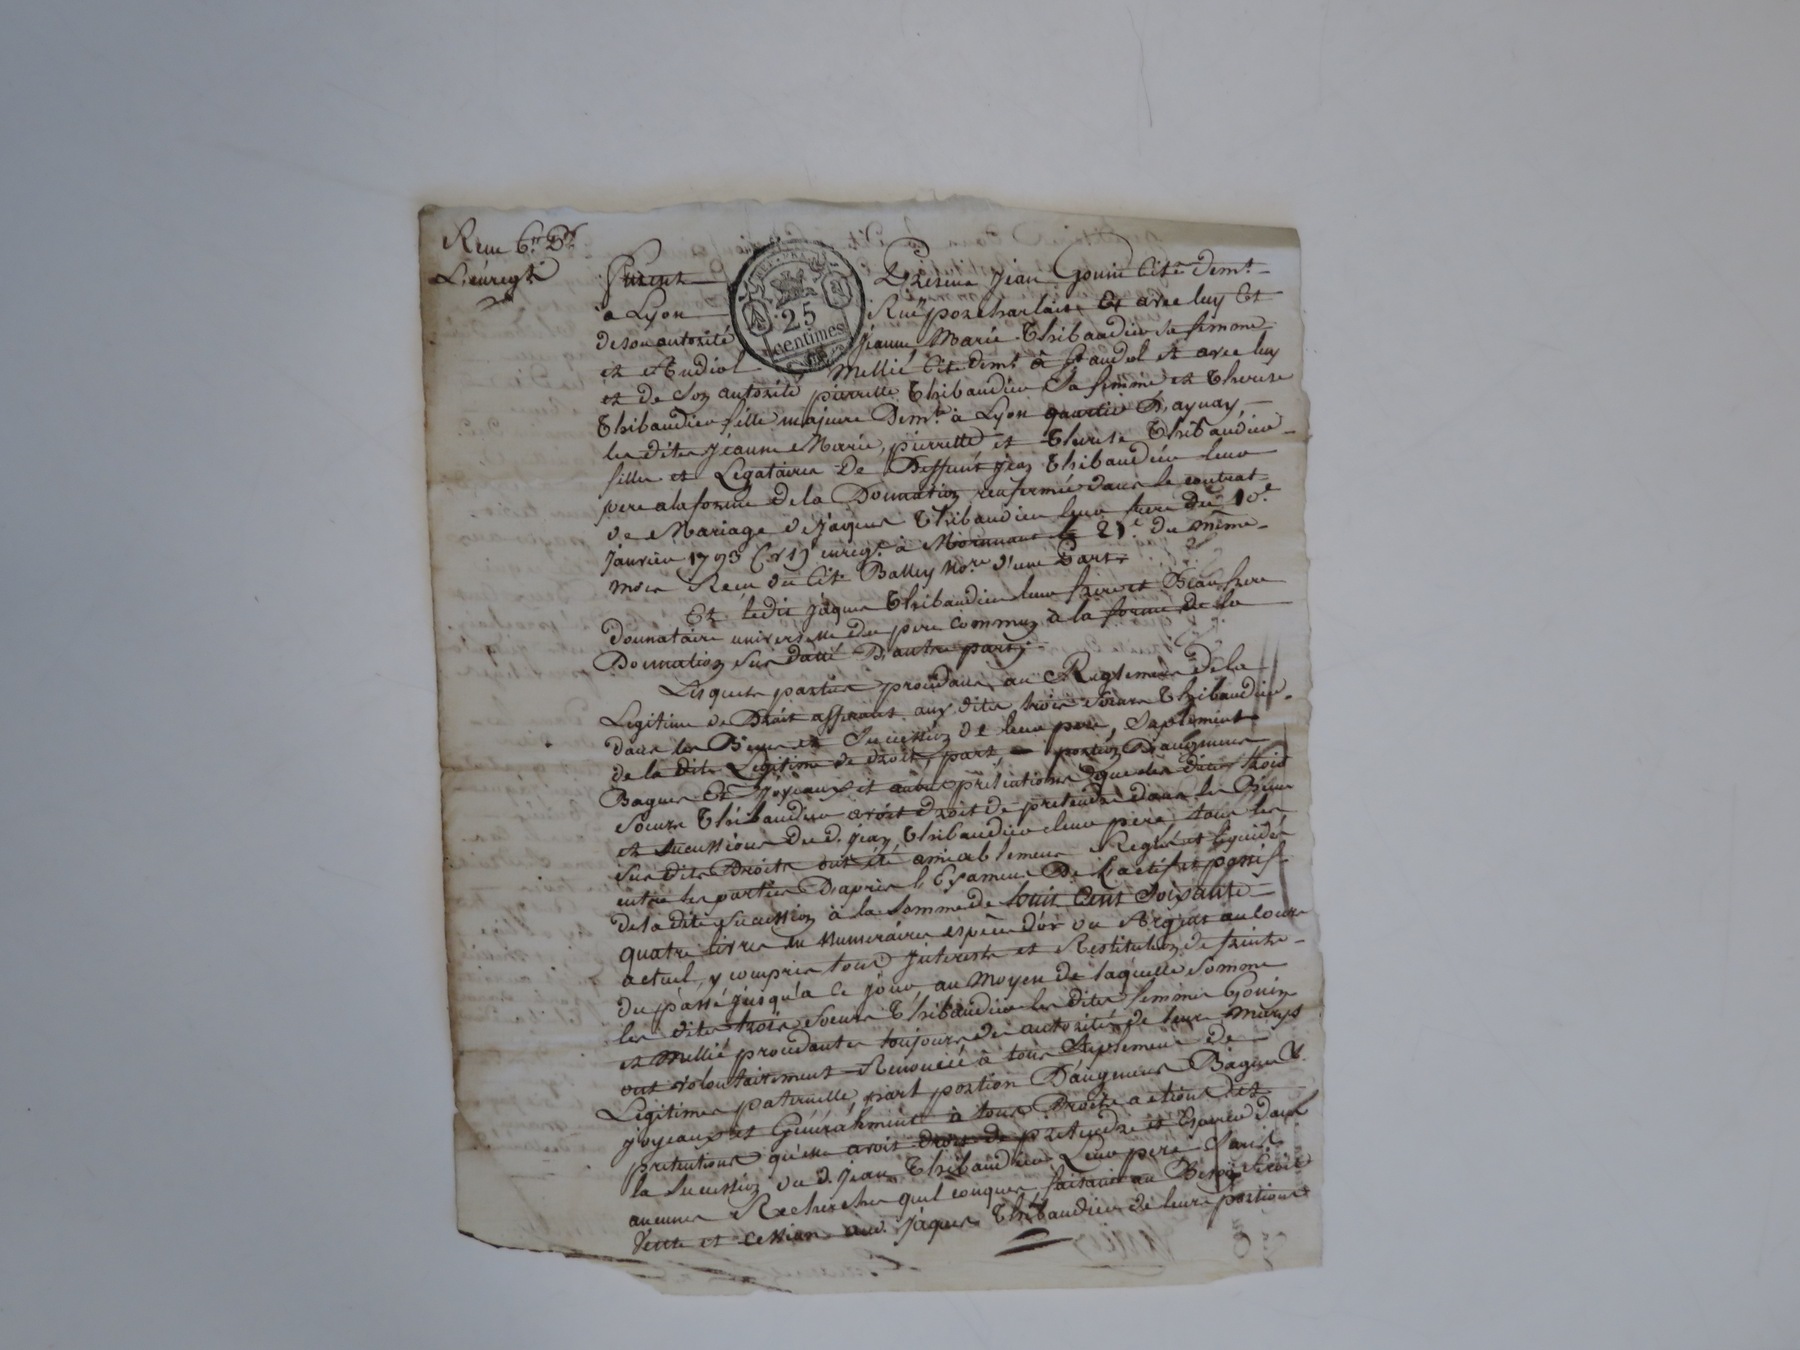 Recu 6.# D.f
L'enregt
REP. FRA.
25
centimes
Furent Présens Jean Gouin Cite. demt.
à Lyon Rue porcharlait Et avec luy Et
de son autorité jeanne Marie Thibaudier sa femme
et Mellié Cite. demt. à et avec luy
et de Son autorité pierrette Thibaudier Sa femme et Therese
Thibaudier fille majeure Demte. à Lyon quartier D'aynay,
les dites jeanne Marie, pierrette et Therese Thibaudier
filles et Legataires de Deffunt jean Thibaudier leur
pere a la forme de la Donnation renfermée dans le contrat
de Mariage de jaques Thibaudier leur frere du 10.e
janvier 1793 (v. s.) enregé. à Mornant le 21.e du même
mois Recu du Cit. Balley Nore. d'une Part.
Et ledit jaques Thibaudier leur frere et Beau frere
Donnataire universel du pere commun à la forme de la
Donnation sus datté D'autre part;
Lesquels parties procedant au Reglement de la
Legitime de Droit afferant aux dites trois soeurs Thibaudier
dans les Biens et Succession de leur pere, Suplement
de la dite Legitime de droit, part, portion D'augment
Bagues Et joyeaux et autres prétentions que les dites trois
Soeurs Thibaudier avoit droit de pretendre dans les Biens
et Successions du d. jean Thibaudier leur pere, tous les
sus dits Droits ont été amiablement Reglé et liquidés
entre les parties D'après l'Examen De L'actif et passif
de la dite Succession à la Somme de huit Cent Soixante
quatre livres en Numeraires espèce d'or ou Argent au cours
actuel, y compris tous Interests et Restitution de fruits
du passé jusqu'à ce jour, au Moyen de laquelle Somme
les dites trois Soeurs Thibaudier les dites femmes Gouin
et Mellié procedantes toujours de autorités de leurs Marys
ont volontairement Renoncé à tous Suplement de
Legitimes paternelle, part portion D'augment Bagues &.
joyeaux et Généralment à tous Droits actions et
pretentions qu'elle avoit droit de prétendre et Espérer dans
la Succession du d. jean Thibaudier Leur pere Sans
aucunes Recherches quelconques faisant au Besoin Toute
Vente et cession aud. jaques Thibaudier de leurs portions